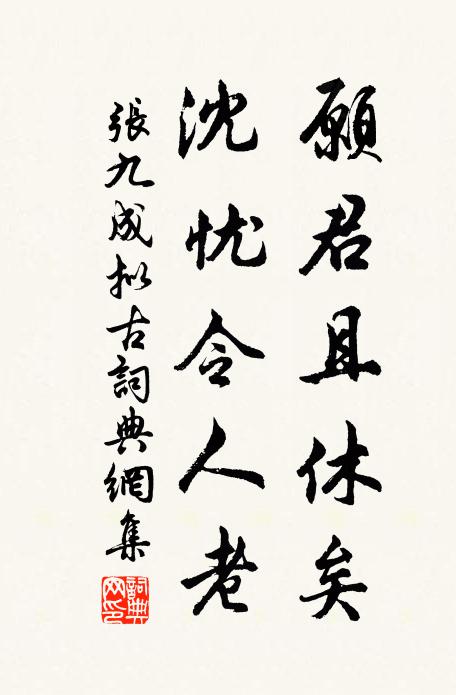 願君且休矣
沈忧令人老
張九成拟古詞典網集
詞典网印